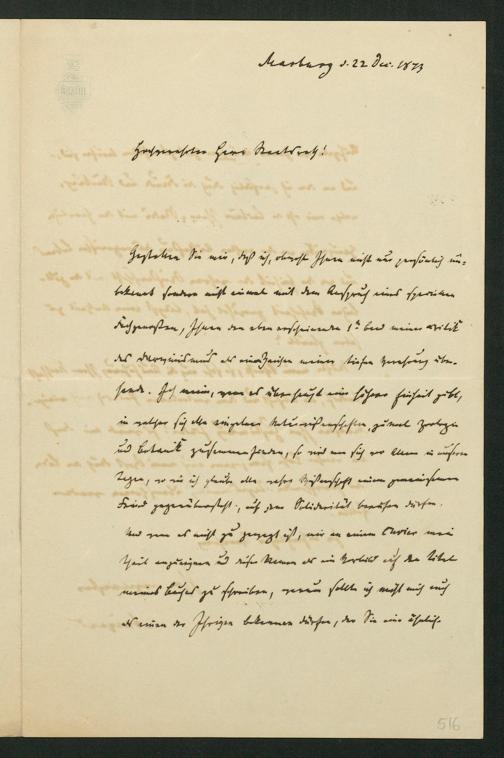 Marburg d. 22 Dec. 1873
Hochgeehrter Herr Staatsrath!
Gestatten Sie mir, daß ich, obwohl Ihnen nicht nur persönlich un-
bekannt sondern nicht einmal mit dem Anspruch eines speciellen
Fachgenossen, Ihnen den eben erscheinenden 1n Band meiner Kritik
des Darwinismus als ein Zeichen meiner tiefen Verehrung über-
sende. Ich meine, wenn es überhaupt eine höhere Einheit gibt,
in welcher sich alle einzelnen Naturwissenschaften, zumal Zoologie
und Botanik zusammenfinden, so wird man sich vor Allem in unseren
Tagen, wo wie ich glaube alle wahre Wissenschaft einem gemeinsamen
Feind gegenübersteht, auf jene Solidarität berufen dürfen.
Und wenn es nicht zu gewagt ist, mir an einem Cuvier mein
Theil anzueignen und dessen Namen als ein Vorbild auf den Titel
meines Buches zu schreiben, warum sollte ich nicht mich auch
als einen der Ihrigen bekennen dürfen, der Sie eine ähnlich-
516